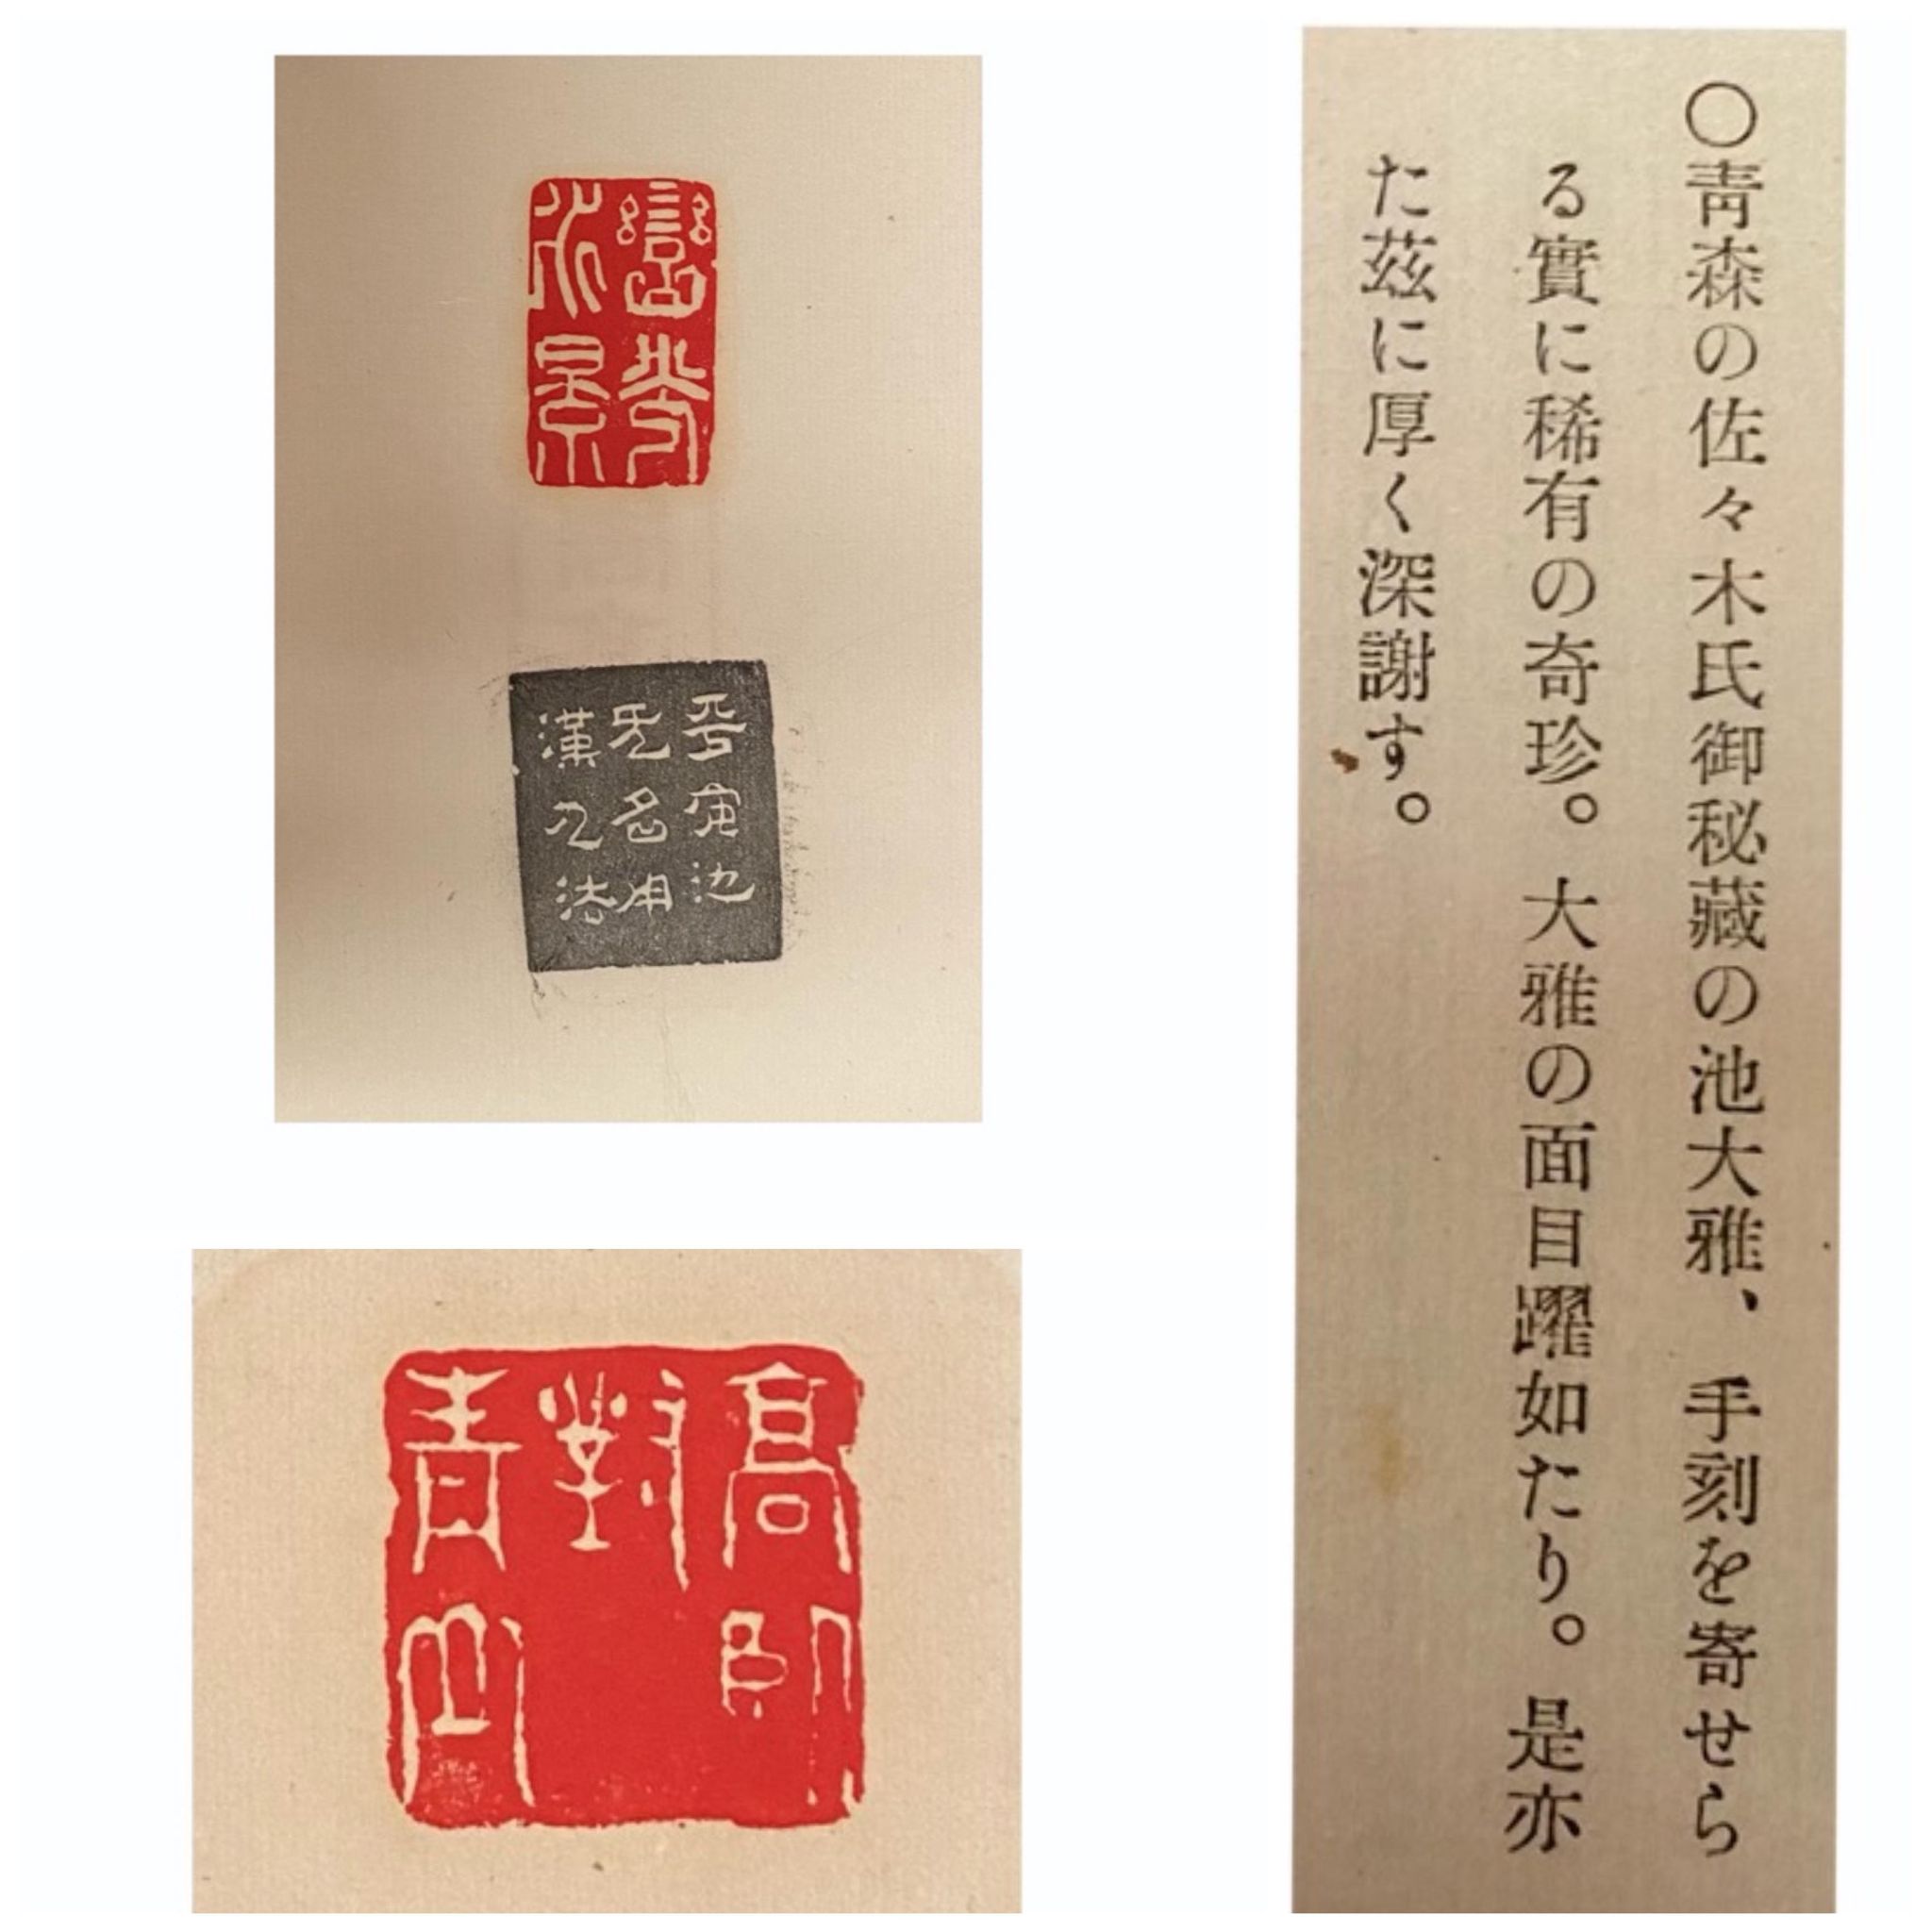 〇靑森の佐々木氏御秘藏の池大雅、手刻を寄せら
る實に稀有の奇珍。大雅の面目躍如たり。是亦
た茲に厚く深謝す。
平安池
无名用
漢人法
高臥
對
青山